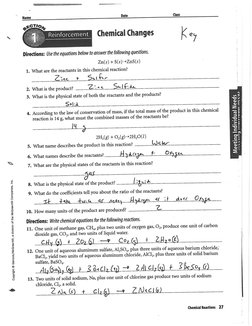 Name Date Class
SECTION 1 Reinforcement Chemical Changes Key
Directions: Use the equations below to answer the following questions.
Zn(s) + S(s) →ZnS(s)
1. What are the reactants in this chemical reaction?
Zinc + Sulfur
2. What is the product? Zinc Sulfide
3. What is the physical state of both the reactants and the products?
Solid
4. According to the law of conservation of mass, if the total mass of the product in this chemical
reaction is 14 g, what must the combined masses of the reactants be?
14 g
2H₂(g) + O₂(g) →2H₂O(l)
5. What name describes the product in this reaction? Water
6. What names describe the reactants? Hydrogen + Oxygen
7. What are the physical states of the reactants in this reaction?
gas
8. What is the physical state of the product? liquid
9. What do the coefficients tell you about the ratio of the reactants?
It takes twice as many Hydrogen as it does Oxygen
10. How many units of the product are produced? 2
Directions: Write chemical equations for the following reactions.
11. One unit of methane gas, CH₄, plus two units of oxygen gas, O₂, produce one unit of carbon
dioxide gas, CO₂, and two units of liquid water.
CH₄(g) + 2O₂(g) → CO₂(g) + 2H₂O(l)
12. One unit of aqueous aluminum sulfate, Al₂(SO₄)₃, plus three units of aqueous barium chloride,
BaCl₂, yield two units of aqueous aluminum chloride, AlCl₃, plus three units of solid barium
sulfate, BaSO₄.
Al₂(SO₄)₃(g) + 3BaCl₂(g) → 2AlCl₃(g) + 3BaSO₄(s)
13. Two units of solid sodium, Na, plus one unit of chlorine gas produce two units of sodium
chloride, Cl₂, a solid.
2Na(s) + Cl₂(g) → 2NaCl(s)
Meeting Individual Needs
Chemical Reactions 27